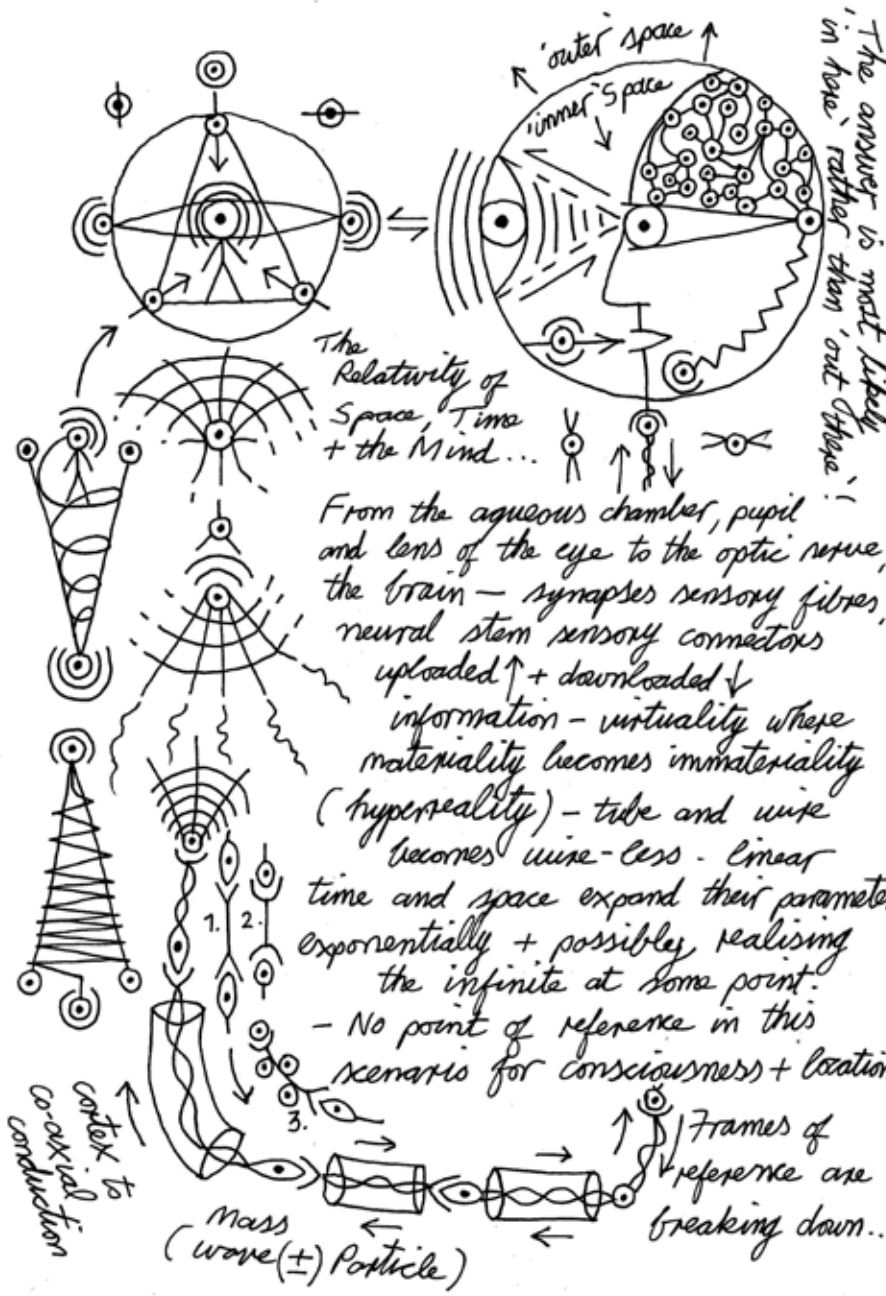 'outer' space
'inner' Space
'The answer is most likely
in here' rather than 'out there'!
The
Relativity of
Space, Time
+ the Mind...
From the aqueous chamber, pupil
and lens of the eye to the optic nerve,
the brain – synapses sensory fibres,
neural stem sensory connectors
uploaded ↑ + downloaded ↓
information – virtuality where
materiality becomes immateriality
(hyperreality) – tube and wire
becomes wire-less. linear
time and space expand their parameter
exponentially + possibly realising
the infinite at some point.
– No point of reference in this
scenario for consciousness + location
1.
2.
3.
cortex to
co-axial
conduction
Mass
(wave (±) Particle)
Frames of
reference are
breaking down..